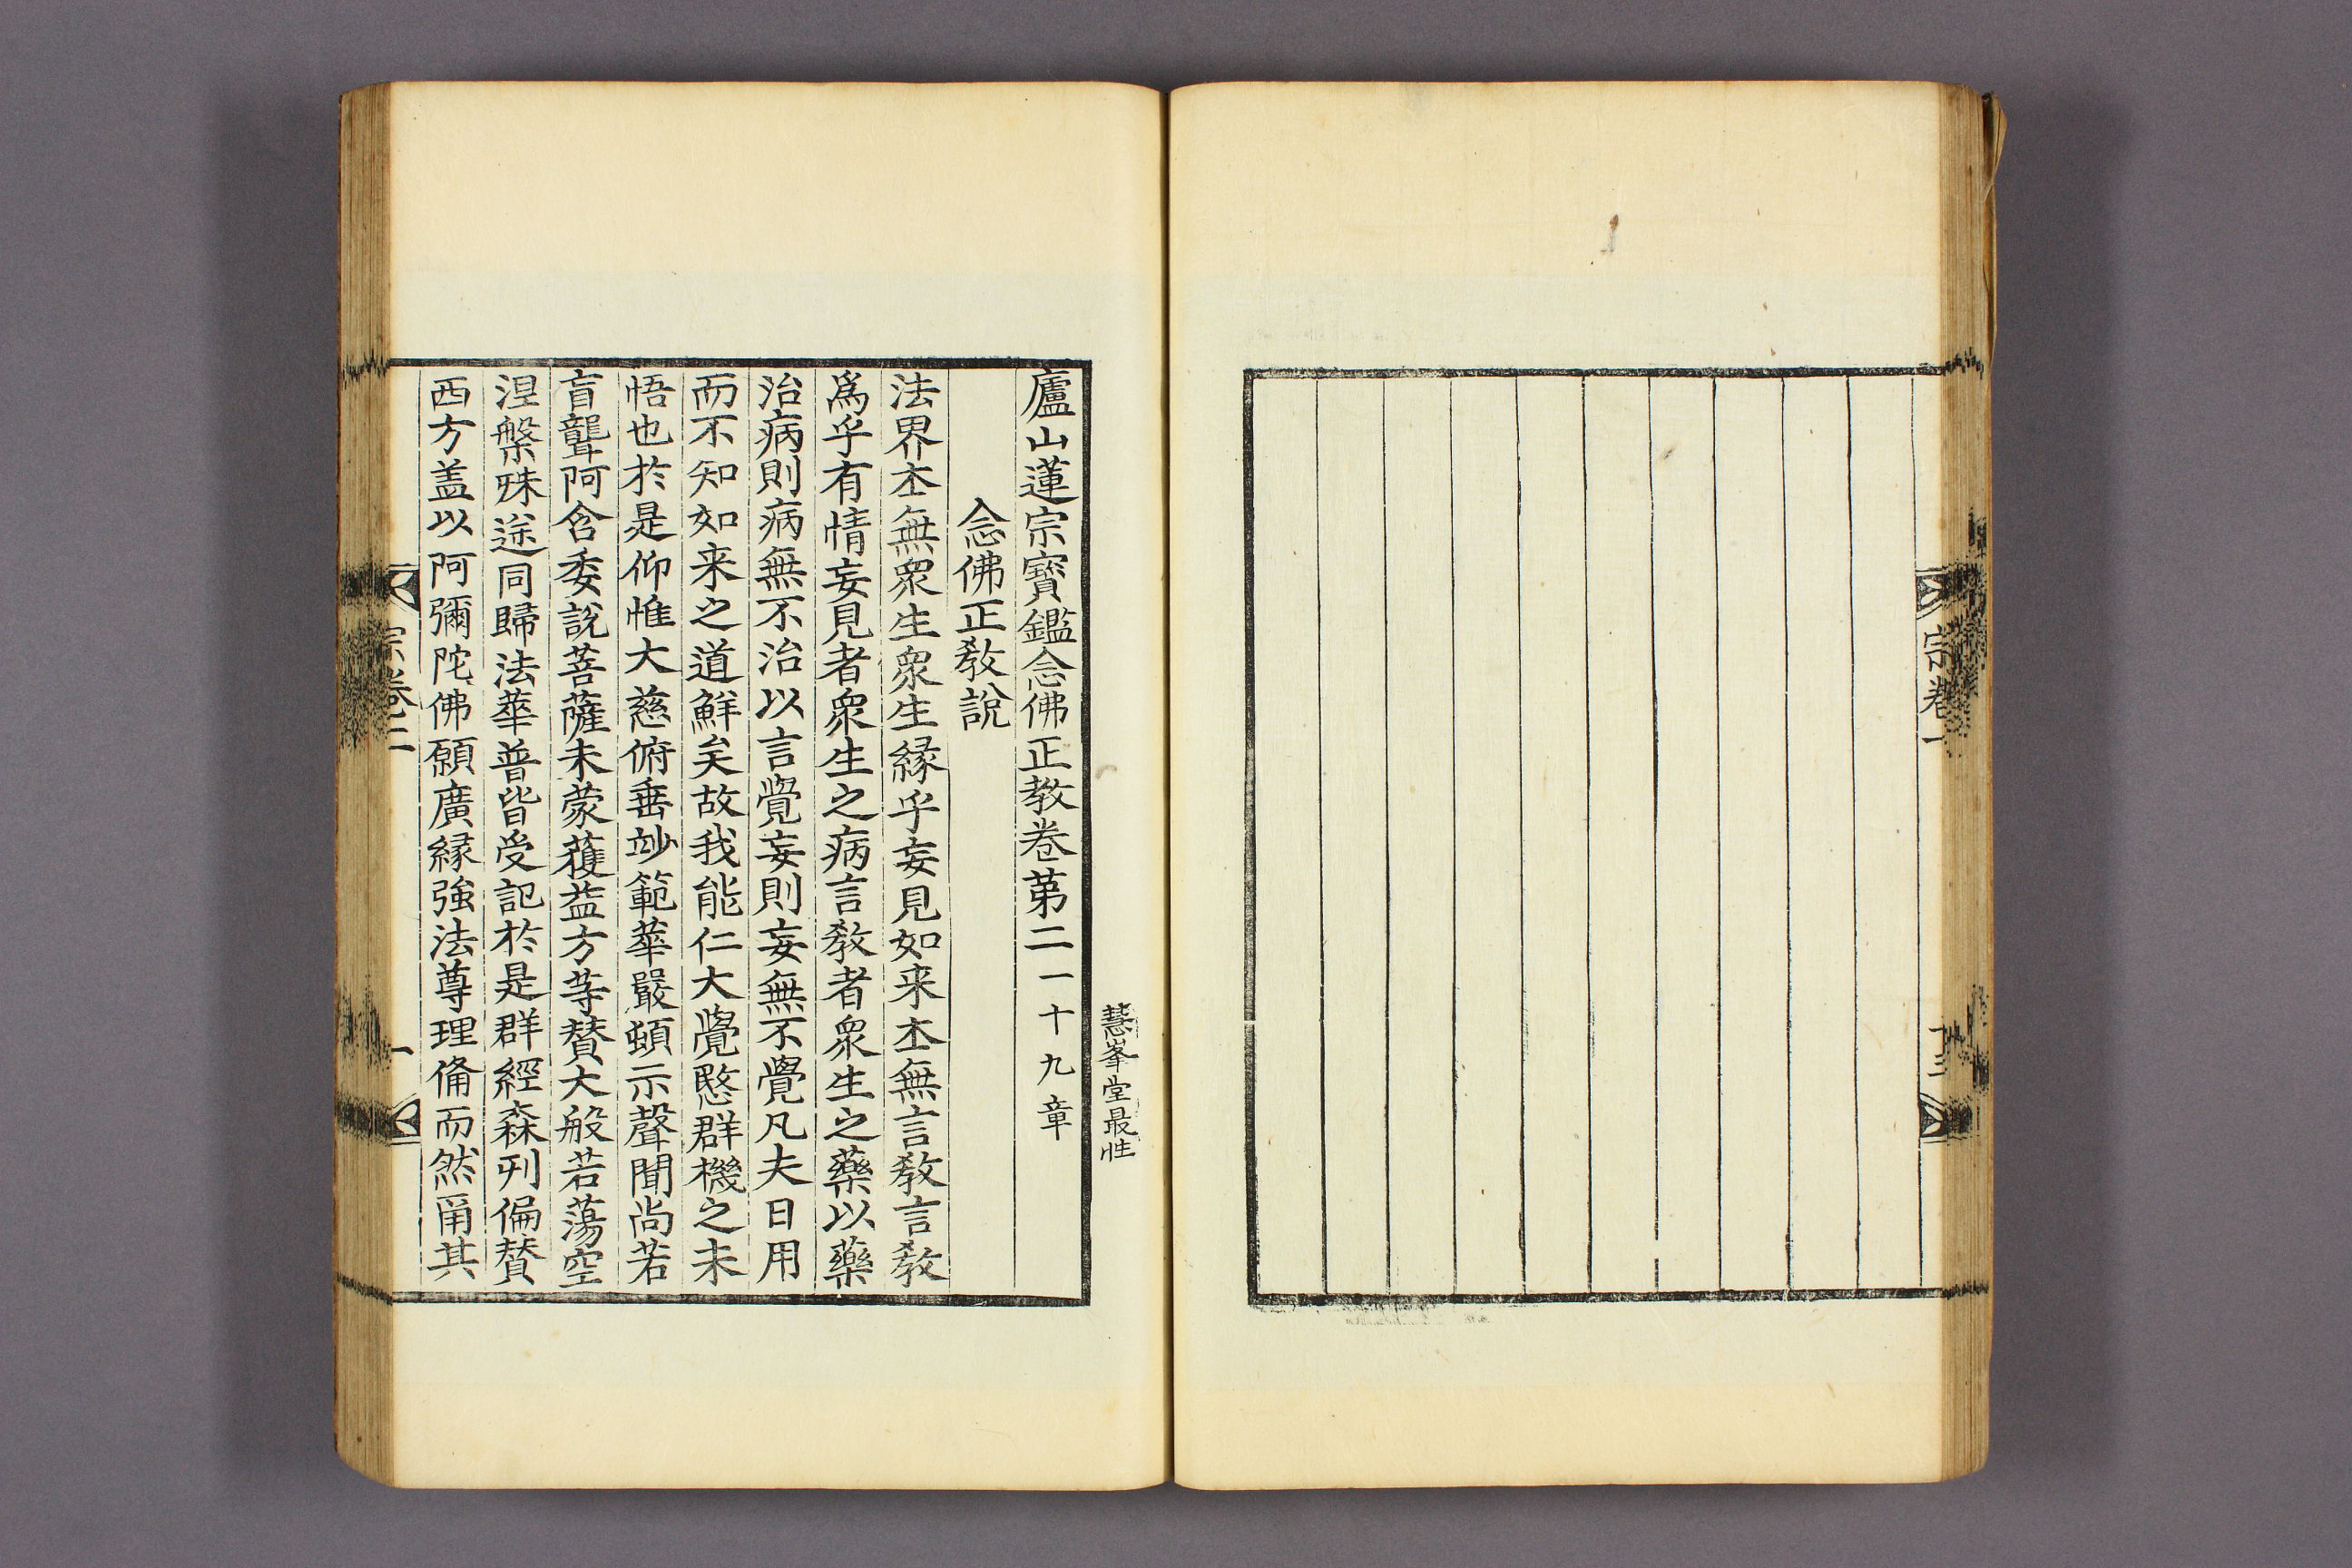 宗卷一
十三
慧峯堂最性
廬山蓮宗寶鑑念佛正教卷第二一十九章
念佛正教說
法界夲無衆生衆生緣乎妄見如来夲無言教言教
爲乎有情妄見者衆生之病言教者衆生之藥以藥
治病則病無不治以言覺妄則妄無不覺凡夫日用
而不知如来之道鮮矣故我能仁大覺愍群機之未
悟也於是仰惟大慈俯垂玅範華嚴頓示聲聞尚若
盲聾阿含委說菩薩未蒙獲益方等賛大般若蕩空
涅槃殊途同歸法華普皆受記於是群經森列偏賛
西方盖以阿彌陀佛願廣緣強法尊理俻而然甭其
宗卷二
一